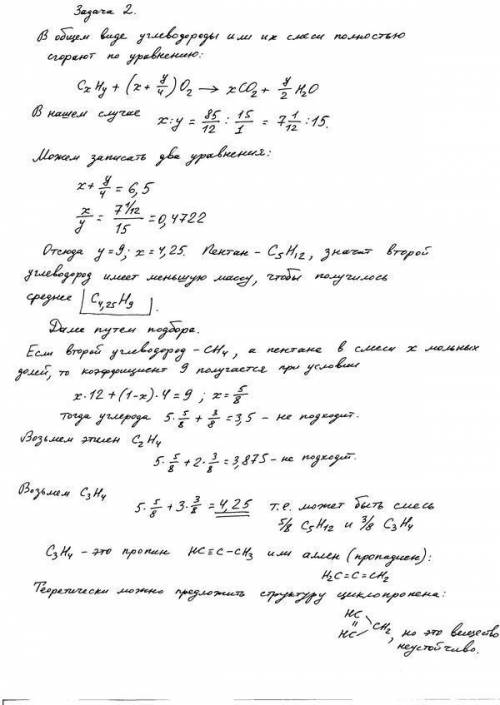 Задача 2.
В общем виде углеводороды или их смеси полностью
сгорают по уравнению:
CxHy + (x + y/4)O2 → xCO2 + y/2 H2O
В нашем случае x:y = 85/12 : 15/1 = 7 1/12 : 15.
Можем записать два уравнения:
x + y/4 = 6,5
x/y = 7 1/12 / 15 = 0,4722
Отсюда y = 9; x = 4,25. Пентан - C5H12, значит второй
углеводород имеет меньшую массу, чтобы получилось
среднее C4,25H9.
Далее путем подбора.
Если второй углеводород - CH4, а пентана в смеси x мольных
долей, то коэффициент 9 получается при условии
x·12 + (1-x)·4 = 9; x = 5/8
Тогда углерода 5·5/8 + 3/8 = 3,5 - не подходит.
Возьмем этилен C2H4
5·5/8 + 2·3/8 = 3,875 - не подходит.
Возьмем C3H4
5·5/8 + 3·3/8 = 4,25 т.е. может быть смесь
5/8 C5H12 и 3/8 C3H4
C3H4 - это пропин HC≡C-CH3 или аллен (пропадиен):
H2C=C=CH2
Теоретически можно предложить структуру циклопропена:
HC
||
HC
CH2, но это вещество
неустойчиво.